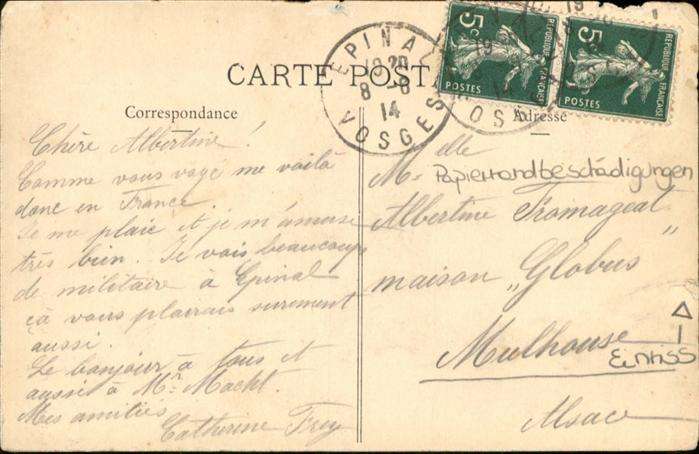 CARTE POSTA
EPINAL
19 20
8 - 6
14
VOSGES
5c
REPUBLIQUE FRANÇAISE
POSTES
5c
REPUBLIQUE FRANÇAISE
POSTES
Correspondance
Chère Albertine !
Comme vous voyez me voilà
donc en France
Je me plaie et je m'amuse
très bien. Je vois beaucoup
de militaire à Epinal
çà vous plairais surement
aussi.
Le bonjour à tous et
aussi à Mr. Macht.
Mes amitiés
Catherine Frey
Adresse
Mdelle
Papierrandbeschädigungen
Albertine Fromageat
maison „Globus"
Mulhouse
Einriss
Alsace